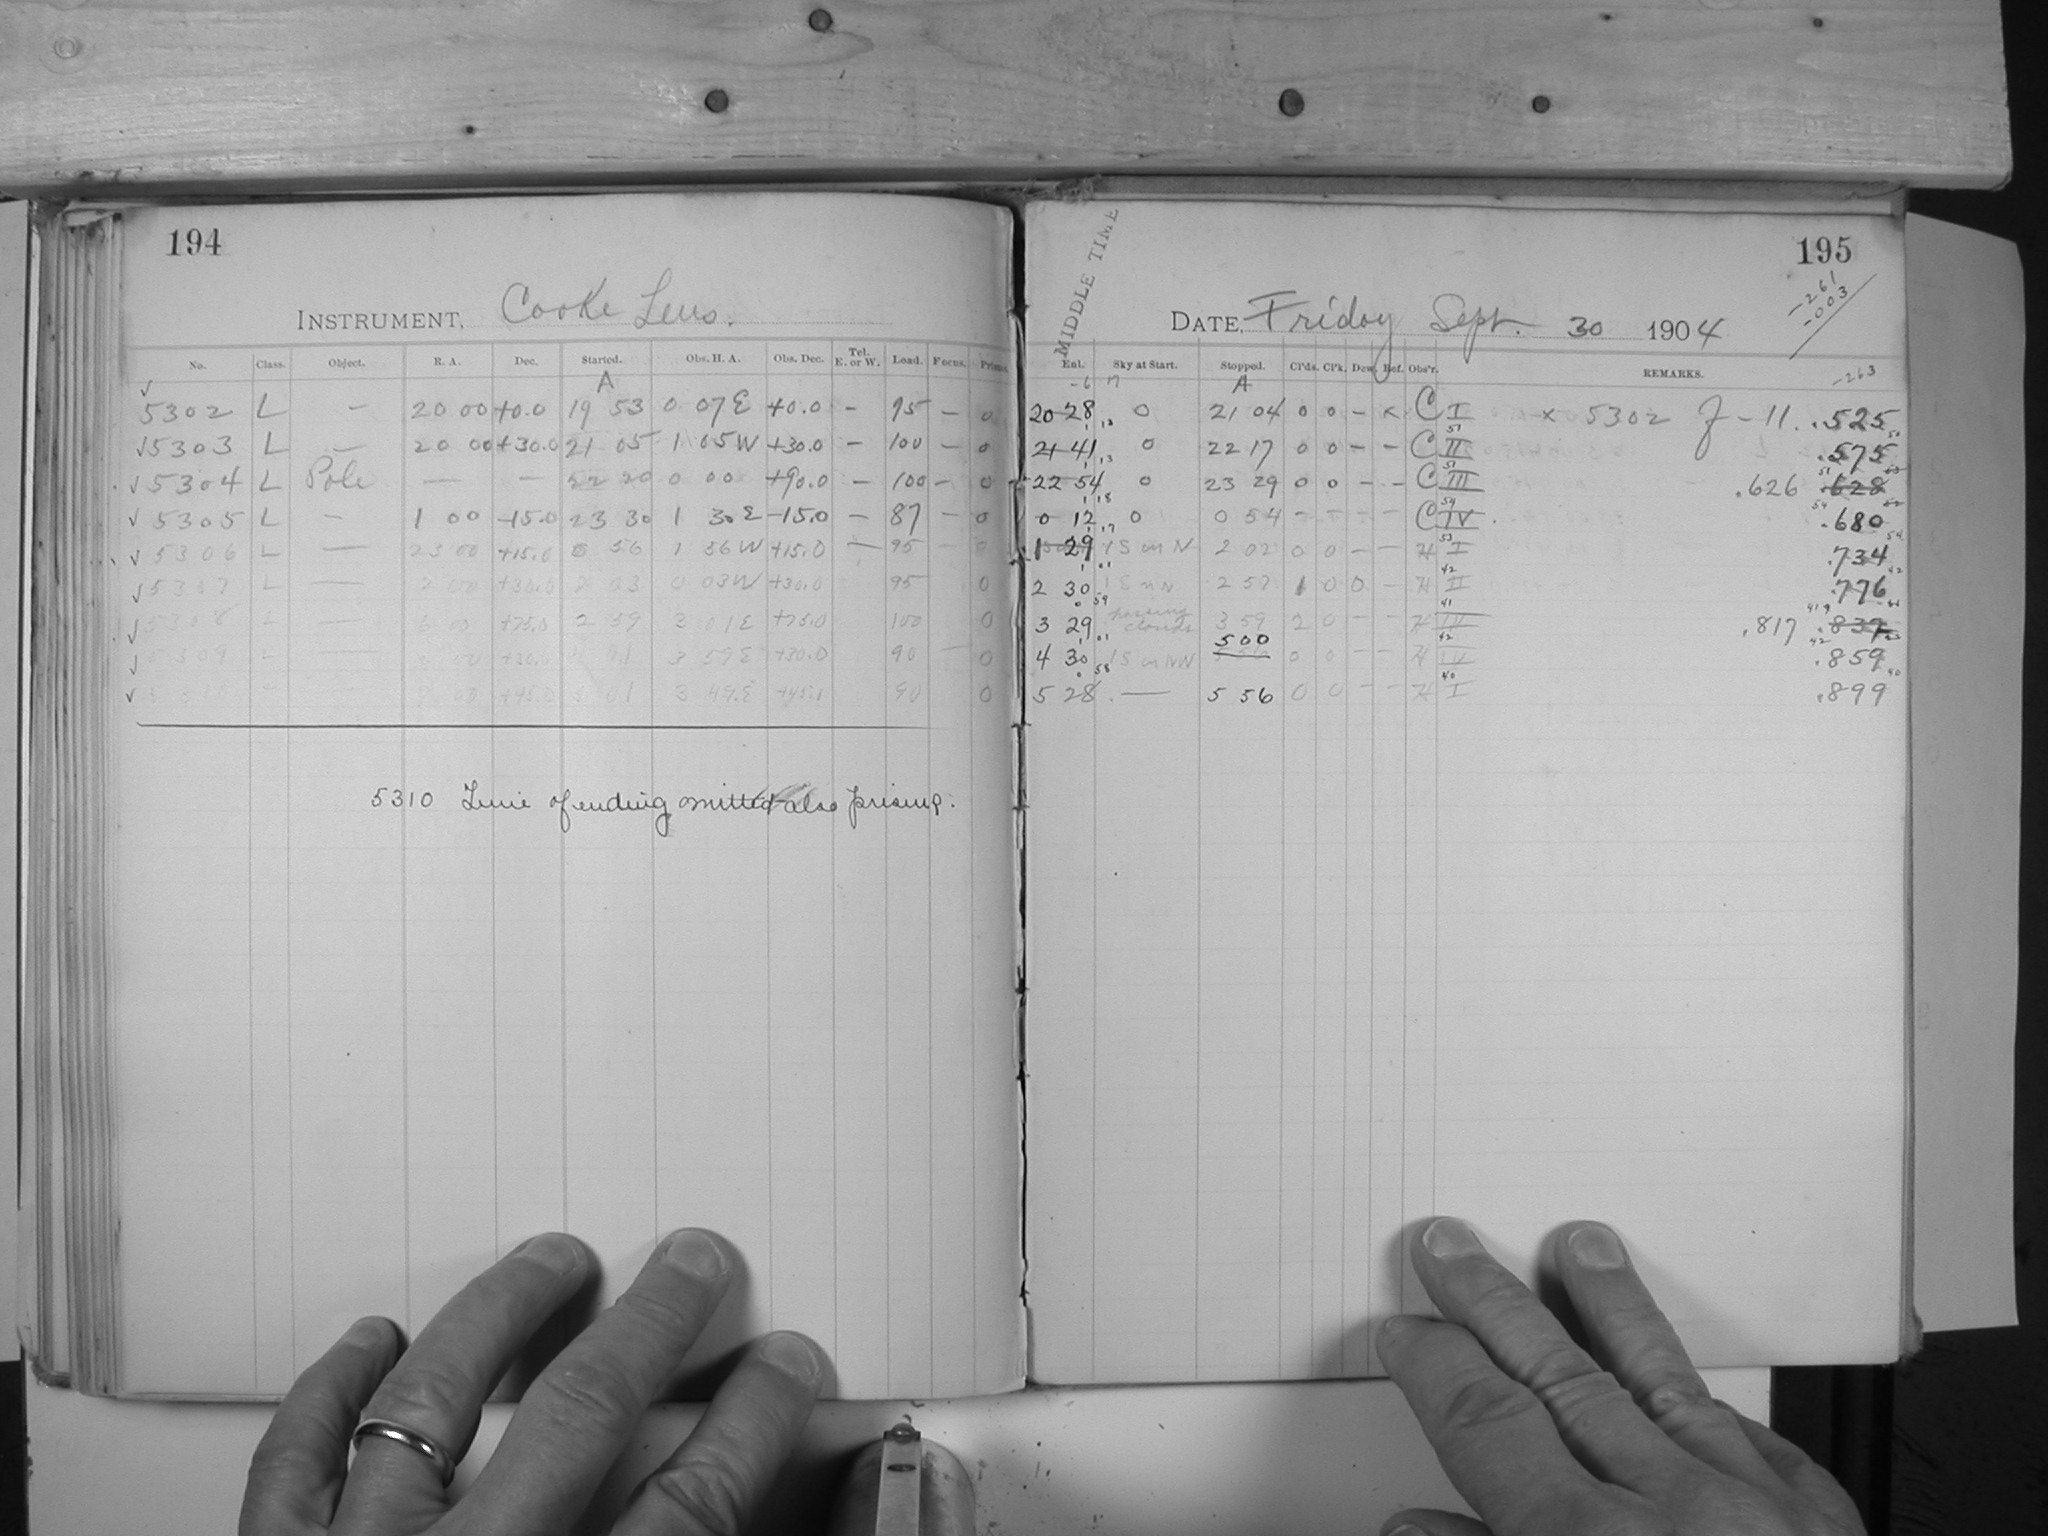 194
INSTRUMENT, Cooke Lens.
No. Class. Object. R. A. Dec. Started. Obs. H. A. Obs. Dec. Tel. E. or W. Load. Focus. Prisms
A
5302 L — 20 00 +0.0 19 53 0 07 E +0.0 — 95 — 0
√ 5303 L — 20 00 +30.0 21 05 1 05 W +30.0 — 100 — 0
√ 5304 L Pole — — 22 20 0 00 +90.0 — 100 — 0
√ 5305 L — 1 00 -15.0 23 30 1 30 E -15.0 — 87 — 0
√ 5306 L — 23 00 +15.0 0 56 1 56 W +15.0 — 95 — 0
√ 5307 L — 2 00 +30.0 2 03 0 03 W +30.0 95 0
√ 5308 L — +25.0 2 59 3 01 E +25.0 100 0
√ 5309 L — +30.0 3 59 E +30.0 90 — 0
√ — +45.0 01 3 49 E 90 0
5310 Time of ending omitted also prisms.
MIDDLE TIME
195
-261
-003
DATE, Friday Sept. 30 1904
Enl. Sky at Start. Stopped. Cl'ds. Cl'k. Dew. Ref. Obs'r. REMARKS. -263
A
20 28 0 21 04 0 0 — × C I × 5302 J - 11. .525
21 41 0 22 17 0 0 — — C II .575
22 54 0 23 29 0 0 — — C III .626 .628
0 12 0 0 54 — — — — C IV .680
1 29 1 S in N 2 02 0 0 — — H I .734
2 30 1 S in N 2 57 1 0 0 — H II .776
3 29 passing clouds 3 59 2 0 H III .817 .837
5 00
4 30 1 S in NW 0 0 — — H IV .859
5 28 — 5 56 0 0 — — H I .899